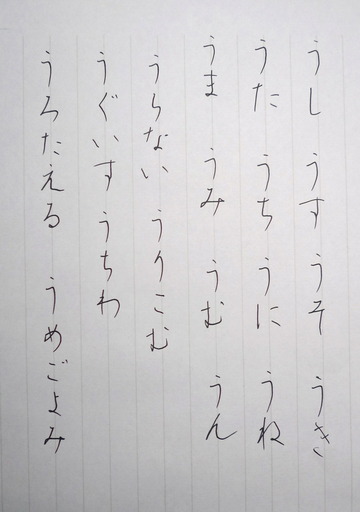 うし うす うそ うき
うた うち うに うね
うま うみ うむ うん
うらない うりこむ
うぐいす うちわ
うろたえる うめごよみ